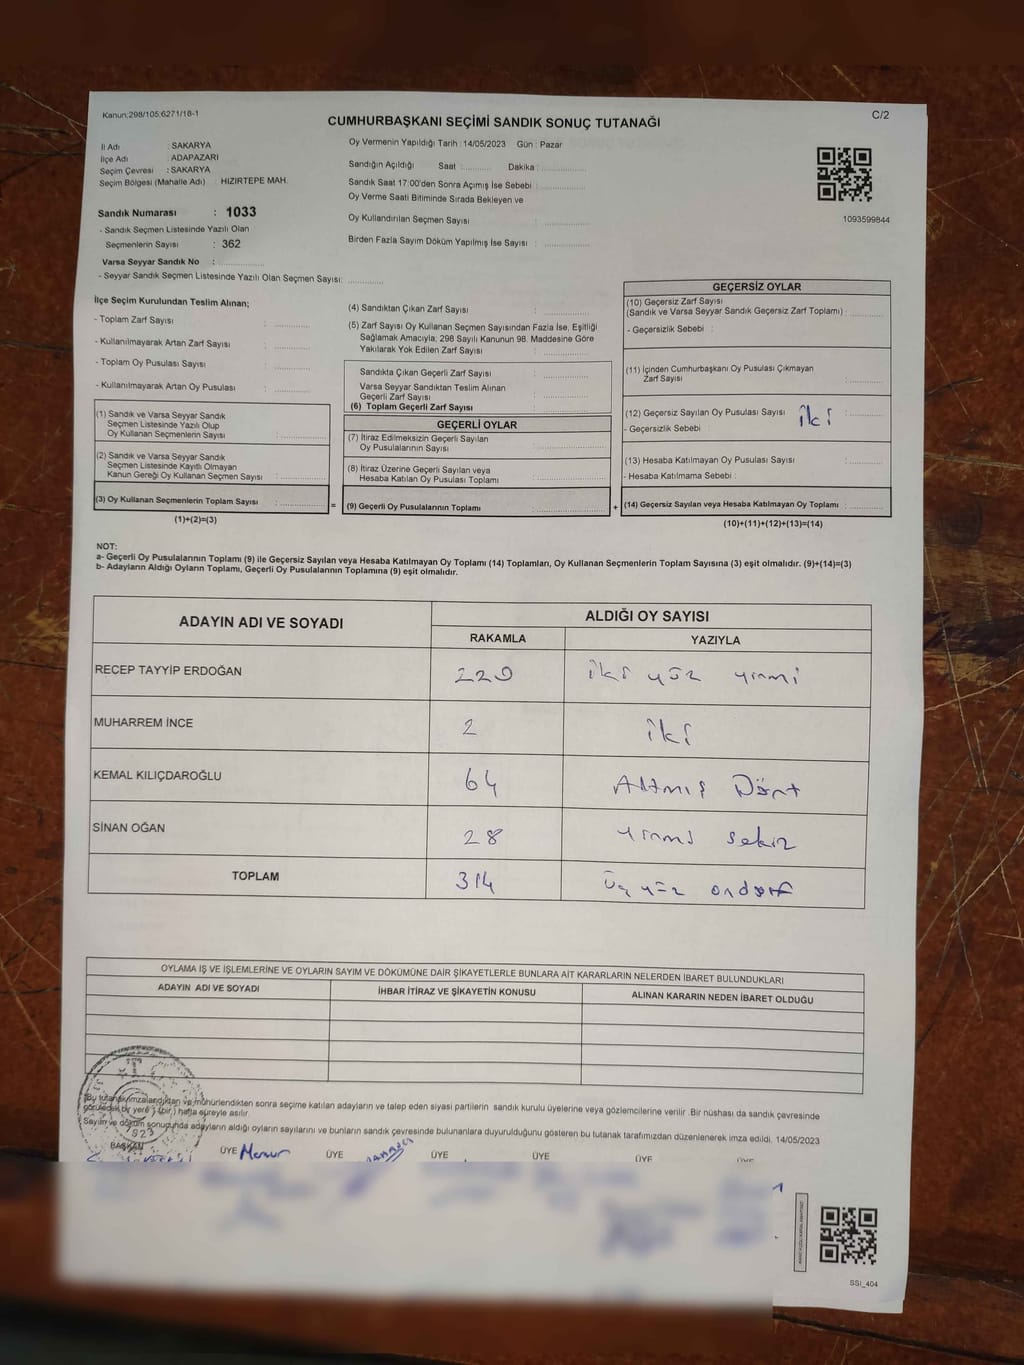 Kanun;298/105;6271/18-1
C/2
CUMHURBAŞKANI SEÇİMİ SANDIK SONUÇ TUTANAĞI
İl Adı : SAKARYA
İlçe Adı : ADAPAZARI
Seçim Çevresi : SAKARYA
Seçim Bölgesi (Mahalle Adı) : HIZIRTEPE MAH.
Sandık Numarası : 1033
- Sandık Seçmen Listesinde Yazılı Olan
Seçmenlerin Sayısı : 362
Varsa Seyyar Sandık No : ............
- Seyyar Sandık Seçmen Listesinde Yazılı Olan Seçmen Sayısı: ............
Oy Vermenin Yapıldığı Tarih : 14/05/2023 Gün : Pazar
Sandığın Açıldığı Saat : ............ Dakika : ............
Sandık Saat 17:00'den Sonra Açımış İse Sebebi : ............
Oy Verme Saati Bitiminde Sırada Bekleyen ve
Oy Kullandırılan Seçmen Sayısı : ............
Birden Fazla Sayım Döküm Yapılmış İse Sayısı : ............
1093599844
İlçe Seçim Kurulundan Teslim Alınan;
- Toplam Zarf Sayısı : ............
- Kullanılmayarak Artan Zarf Sayısı : ............
- Toplam Oy Pusulası Sayısı : ............
- Kullanılmayarak Artan Oy Pusulası : ............
(1) Sandık ve Varsa Seyyar Sandık
Seçmen Listesinde Yazılı Olup
Oy Kullanan Seçmenlerin Sayısı : ............
(2) Sandık ve Varsa Seyyar Sandık
Seçmen Listesinde Kayıtlı Olmayan
Kanun Gereği Oy Kullanan Seçmen Sayısı : ............
(3) Oy Kullanan Seçmenlerin Toplam Sayısı : ............
(1)+(2)=(3)
=
(4) Sandıktan Çıkan Zarf Sayısı : ............
(5) Zarf Sayısı Oy Kullanan Seçmen Sayısından Fazla İse, Eşitliği
Sağlamak Amacıyla; 298 Sayılı Kanunun 98. Maddesine Göre
Yakılarak Yok Edilen Zarf Sayısı : ............
Sandıkta Çıkan Geçerli Zarf Sayısı : ............
Varsa Seyyar Sandıktan Teslim Alınan
Geçerli Zarf Sayısı : ............
(6) Toplam Geçerli Zarf Sayısı : ............
GEÇERLİ OYLAR
(7) İtiraz Edilmeksizin Geçerli Sayılan
Oy Pusulalarının Sayısı : ............
(8) İtiraz Üzerine Geçerli Sayılan veya
Hesaba Katılan Oy Pusulası Toplamı : ............
(9) Geçerli Oy Pusulalarının Toplamı : ............
+
GEÇERSİZ OYLAR
(10) Geçersiz Zarf Sayısı
(Sandık ve Varsa Seyyar Sandık Geçersiz Zarf Toplamı) : ............
- Geçersizlik Sebebi :
(11) İçinden Cumhurbaşkanı Oy Pusulası Çıkmayan
Zarf Sayısı : ............
(12) Geçersiz Sayılan Oy Pusulası Sayısı iki : ............
- Geçersizlik Sebebi :
(13) Hesaba Katılmayan Oy Pusulası Sayısı : ............
- Hesaba Katılmama Sebebi :
(14) Geçersiz Sayılan veya Hesaba Katılmayan Oy Toplamı : ............
(10)+(11)+(12)+(13)=(14)
NOT:
a- Geçerli Oy Pusulalarının Toplamı (9) ile Geçersiz Sayılan veya Hesaba Katılmayan Oy Toplamı (14) Toplamları, Oy Kullanan Seçmenlerin Toplam Sayısına (3) eşit olmalıdır. (9)+(14)=(3)
b- Adayların Aldığı Oyların Toplamı, Geçerli Oy Pusulalarının Toplamına (9) eşit olmalıdır.
ADAYIN ADI VE SOYADI
ALDIĞI OY SAYISI
RAKAMLA YAZIYLA
RECEP TAYYİP ERDOĞAN 220 iki yüz yirmi
MUHARREM İNCE 2 iki
KEMAL KILIÇDAROĞLU 64 Altmış Dört
SİNAN OĞAN 28 yirmi sekiz
TOPLAM 314 üç yüz ondört
OYLAMA İŞ VE İŞLEMLERİNE VE OYLARIN SAYIM VE DÖKÜMÜNE DAİR ŞİKAYETLERLE BUNLARA AİT KARARLARIN NELERDEN İBARET BULUNDUKLARI
ADAYIN ADI VE SOYADI İHBAR İTİRAZ VE ŞİKAYETİN KONUSU ALINAN KARARIN NEDEN İBARET OLDUĞU
Bu tutanak imzalandıktan ve mühürlendikten sonra seçime katılan adayların ve talep eden siyasi partilerin sandık kurulu üyelerine veya gözlemcilerine verilir .Bir nüshası da sandık çevresinde
görülecek bir yere 1 (bir) hafta süreyle asılır.
Sayım ve döküm sonucunda adayların aldığı oyların sayılarını ve bunların sandık çevresinde bulunanlara duyurulduğunu gösteren bu tutanak tarafımızdan düzenlenerek imza edildi, 14/05/2023
1923
BAŞKAN ÜYE Memur ÜYE ÜYE ÜYE ÜYE
SSİ_404